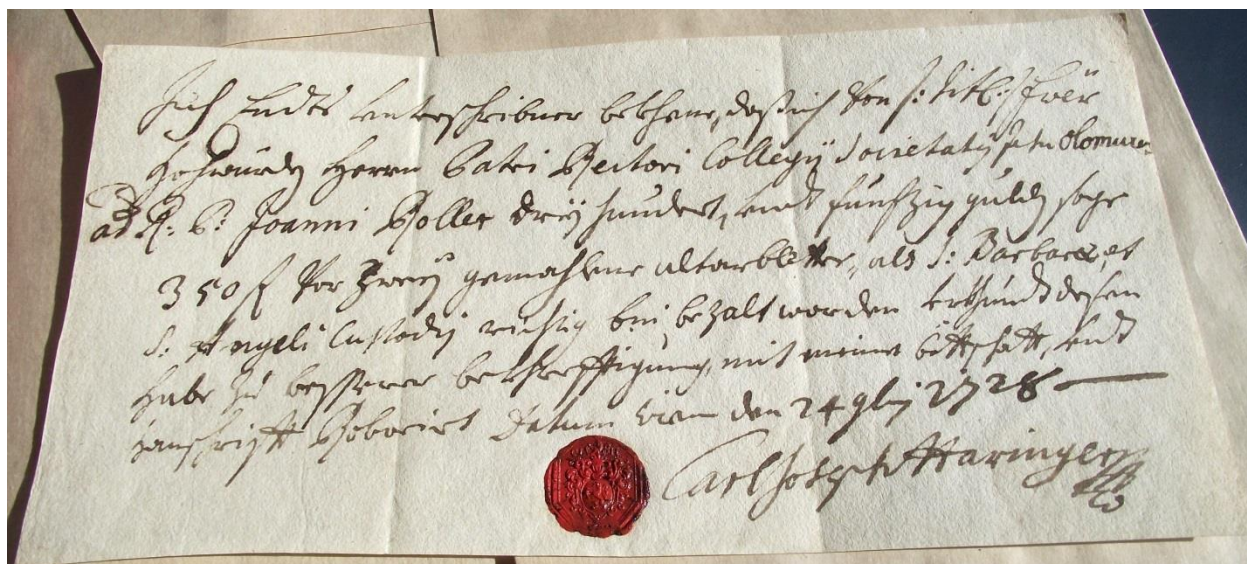 Ich Endts unterschribner bekhene, daß ich von S: Titl: Ihro
Hochwürdn Herrn Patri Rectori Collegij Societatis Jesu Olomucen
ad R: P: Joanni Roller dreÿ hundert, undt funfzig guldn sage
350 f vor zweÿ gemahlene altarbletter, als S: Barbarae, et
S: Angeli Custodis richtig bin bezalt worden Urkhundt dessen
habe zu besserer bekhrefftigung, mit meiner bettschafft, undt
hanschrifft Roborirt Datum den 24 9bris 1728
Carl Joseph Haringer